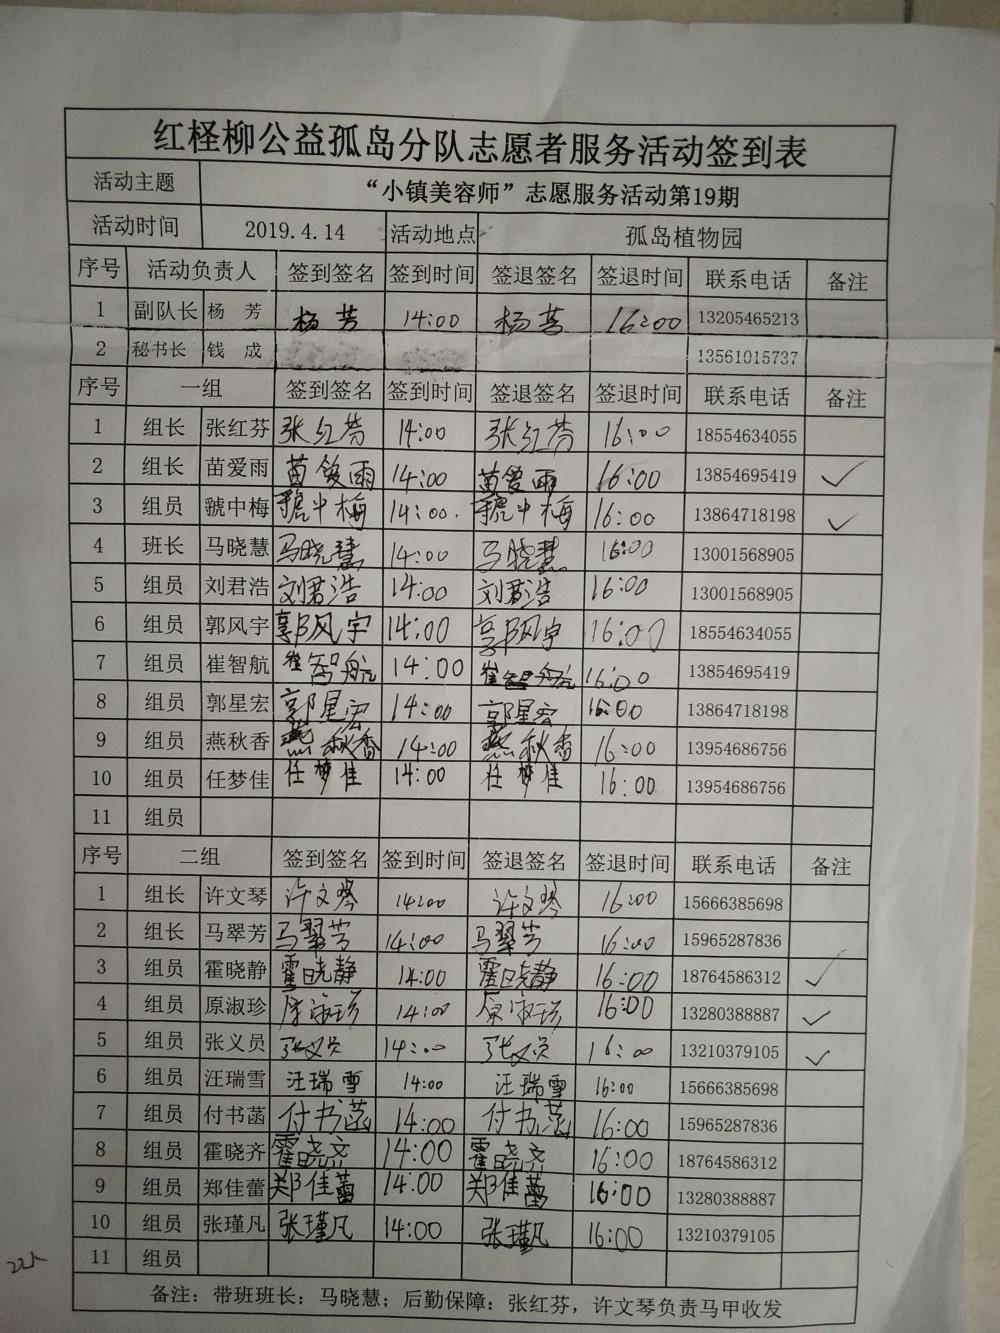 红柽柳公益孤岛分队志愿者服务活动签到表
活动主题 “小镇美容师”志愿服务活动第19期
活动时间 2019.4.14 活动地点 孤岛植物园
序号 活动负责人 签到签名 签到时间 签退签名 签退时间 联系电话 备注
1 副队长 杨 芳 杨芳 14:00 杨芳 16:00 13205465213
2 秘书长 钱 成 13561015737
序号 一组 签到签名 签到时间 签退签名 签退时间 联系电话 备注
1 组长 张红芬 张红芬 14:00 张红芬 16:00 18554634055
2 组长 苗爱雨 苗爱雨 14:00 苗爱雨 16:00 13854695419 ✓
3 组员 虢中梅 虢中梅 14:00. 虢中梅 16:00 13864718198 ✓
4 班长 马晓慧 马晓慧 14:00 马晓慧 16:00 13001568905
5 组员 刘君浩 刘君浩 14:00 刘君浩 16:00 13001568905
6 组员 郭风宇 郭风宇 14:00 郭风宇 16:00 18554634055
7 组员 崔智航 崔智航 14:00 崔智航 16:00 13854695419
8 组员 郭星宏 郭星宏 14:00 郭星宏 16:00 13864718198
9 组员 燕秋香 燕秋香 14:00 燕秋香 16:00 13954686756
10 组员 任梦佳 任梦佳 14:00 任梦佳 16:00 13954686756
11 组员
序号 二组 签到签名 签到时间 签退签名 签退时间 联系电话 备注
1 组长 许文琴 许文琴 14:00 许文琴 16:00 15666385698
2 组长 马翠芳 马翠芳 14:00 马翠芳 16:00 15965287836
3 组员 霍晓静 霍晓静 14:00 霍晓静 16:00 18764586312 ✓
4 组员 原淑珍 原淑珍 14:00 原淑珍 16:00 13280388887 ✓
5 组员 张义员 张义员 14:00 张义员 16:00 13210379105 ✓
6 组员 汪瑞雪 汪瑞雪 14:00 汪瑞雪 16:00 15666385698
7 组员 付书菡 付书菡 14:00 付书菡 16:00 15965287836
8 组员 霍晓齐 霍晓齐 14:00 霍晓齐 16:00 18764586312
9 组员 郑佳蕾 郑佳蕾 14:00 郑佳蕾 16:00 13280388887
10 组员 张瑾凡 张瑾凡 14:00 张瑾凡 16:00 13210379105
11 组员
22人
备注：带班班长：马晓慧；后勤保障：张红芬，许文琴负责马甲收发